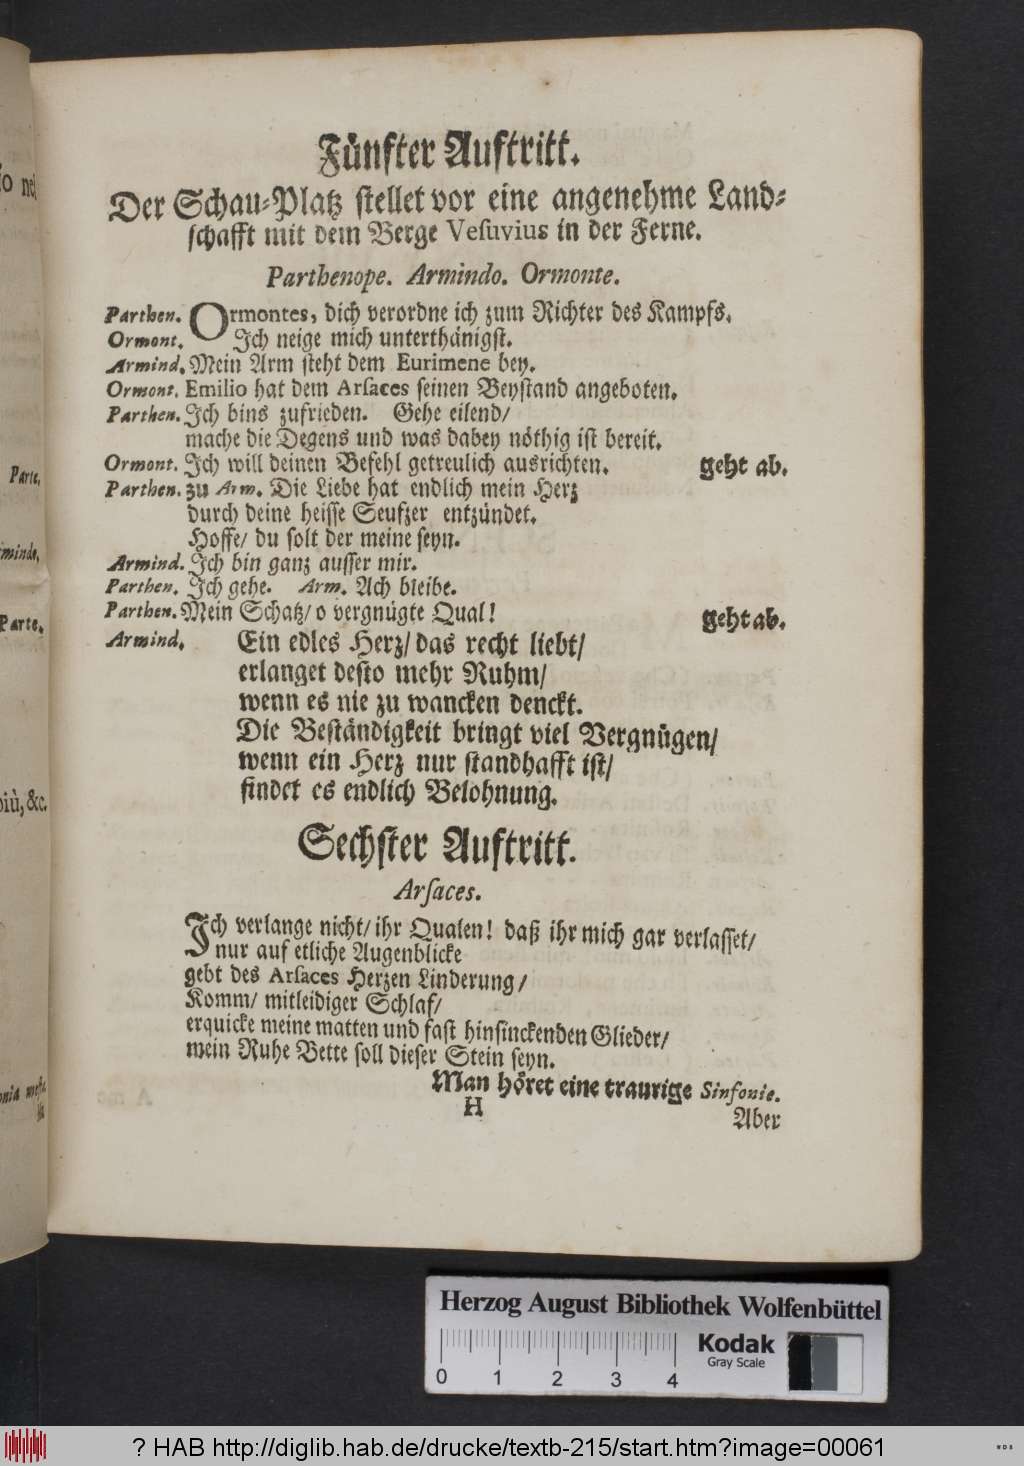 Fünfter Auftritt.
Der Schau-Platz stellet vor eine angenehme Land-
schafft mit dem Berge Vesuvius in der Ferne.
Parthenope. Armindo. Ormonte.
Parthen. Ormontes, dich verordne ich zum Richter des Kampfs.
Ormont. Ich neige mich unterthänigst.
Armind. Mein Arm steht dem Eurimene bey.
Ormont. Emilio hat dem Arsaces seinen Beystand angeboten.
Parthen. Ich bins zufrieden. Gehe eilend/
mache die Degens und was dabey nöthig ist bereit.
Ormont. Ich will deinen Befehl getreulich ausrichten. geht ab.
Parthen. zu Arm. Die Liebe hat endlich mein Herz
durch deine heisse Seufzer entzündet.
Hoffe/ du solt der meine seyn.
Armind. Ich bin ganz ausser mir.
Parthen. Ich gehe. Arm. Ach bleibe.
Parthen. Mein Schatz/ o vergnügte Qual! geht ab.
Armind. Ein edles Herz/ das recht liebt/
erlanget desto mehr Ruhm/
wenn es nie zu wancken denckt.
Die Beständigkeit bringt viel Vergnügen/
wenn ein Herz nur standhafft ist/
findet es endlich Belohnung.
Sechster Auftritt.
Arsaces.
Ich verlange nicht/ ihr Qualen! daß ihr mich gar verlasset/
nur auf etliche Augenblicke
gebt des Arsaces Herzen Linderung/
Komm/ mitleidiger Schlaf/
erquicke meine matten und fast hinsinckenden Glieder/
mein Ruhe Bette soll dieser Stein seyn.
Man höret eine traurige Sinfonie.
H
Aber
Parte.
Parte.
più, &c.
Herzog August Bibliothek Wolfenbüttel
Kodak
Gray Scale
0 1 2 3 4
? HAB http://diglib.hab.de/drucke/textb-215/start.htm?image=00061
WDB